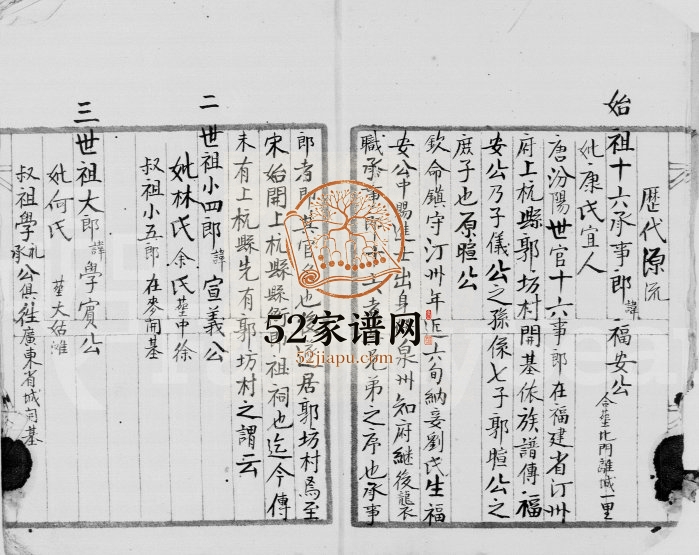 歷代源流
始祖十六承事郎 諱 福安公 合塟北門離城一里
妣康氏宜人
唐汾陽世官十六事郎在福建省汀州
府上杭縣郭坊村開基依族譜傳福
安公乃子儀公之孫係七子郭暄公之
庶子也原暄公
欽命鎮守汀州年近六旬納妾劉氏生福
安公中賜進士出身 泉州知府継後襲
職承事郎 兄弟之序也承事
郎者即其官名也後 居郭坊村焉至
宋始開上杭縣縣 祖祠也迄今傳
未有上杭縣先有郭坊村之謂云
二世祖小四郎 諱 宣義公
妣林氏余氏塟中徐
叔祖小五郎 在麥開基
三世祖大郎 諱 學賓公
妣向氏 塟大姑灘
叔祖學禮承公俱往廣東省城開基
52家谱网
52jiapu.com